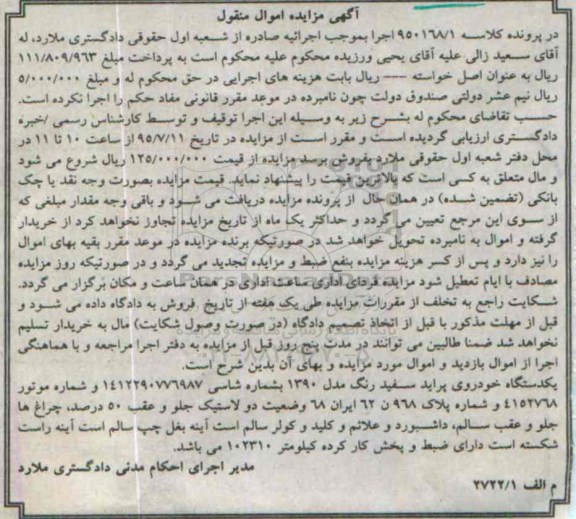 آگهی مزایده اموال منقول
در پرونده کلاسه ۹۵۰۱۶۸/۱ اجرا بموجب اجرائیه صادره از شعبه اول حقوقی دادگستری ملارد، له
آقای سعید زالی علیه آقای یحیی ورزیده محکوم علیه محکوم است به پرداخت مبلغ ۱۱۱/۸۰۹/۹۶۳
ریال به عنوان اصل خواسته --- ریال بابت هزینه های اجرایی در حق محکوم له و مبلغ ۵/۰۰۰/۰۰۰
ریال نیم عشر دولتی صندوق دولت چون نامبرده در موعد مقرر قانونی مفاد حکم را اجرا نکرده است.
حسب تقاضای محکوم له بشرح زیر به وسیله این اجرا توقیف و توسط کارشناس رسمی /خبره
دادگستری ارزیابی گردیده است و مقرر است از مزایده در تاریخ ۹۵/۷/۱۱ از ساعت ۱۰ تا ۱۱ در
محل دفتر شعبه اول حقوقی ملارد بفروش برسد مزایده از قیمت ۱۲۵/۰۰۰/۰۰۰ ریال شروع می شود
و مال متعلق به کسی است که بالاترین قیمت را پیشنهاد نماید. قیمت مزایده بصورت وجه نقد یا چک
بانکی (تضمین شده) در همان حال از پرونده مزایده دریافت می شود و باقی وجه مقدار مبلغی که
از سوی این مرجع تعیین می گردد و حداکثر یک ماه از تاریخ مزایده تجاوز نخواهد کرد از خریدار
گرفته و اموال به نامبرده تحویل خواهد شد در صورتیکه برنده مزایده در موعد مقرر بقیه بهای اموال
را نیز دارد و پس از کسر هزینه مزایده بنفع ضبط و مزایده تجدید می گردد و در صورتیکه روز مزایده
مصادف با ایام تعطیل شود مزایده فردای اداری ساعت اداری در همان ساعت و مکان برگزار می گردد.
شکایت راجع به تخلف از مقررات مزایده طی یک هفته از تاریخ فروش به دادگاه داده می شود و
قبل از مهلت مذکور با قبل از اتخاذ تصمیم دادگاه (در صورت وصول شکایت) مال به خریدار تسلیم
نخواهد شد ضمنا طالبین می توانند در مدت پنج روز قبل از مزایده به دفتر اجرا مراجعه و با هماهنگی
اجرا از اموال بازدید و اموال مورد مزایده و بهای آن بدین شرح است.
یکدستگاه خودروی پراید سفید رنگ مدل ۱۳۹۰ بشماره شاسی ۱٤۱۲۲۹۰۷۷٦۹۸۷ و شماره موتور
٤۱۵۲۷٦۸ و شماره پلاک ۹٦۸ ن ٦۲ ایران ٦۸ وضعیت دو لاستیک جلو و عقب ۵۰ درصد، چراغ ها
جلو و عقب سالم، داشبورد و علائم و کلید و کولر سالم است آینه بغل چپ سالم است آینه راست
شکسته است دارای ضبط و پخش کار کرده کیلومتر ۱۰۲۳۱۰ می باشد.
مدیر اجرای احکام مدنی دادگستری ملارد
م الف ۲۷۲۲/۱